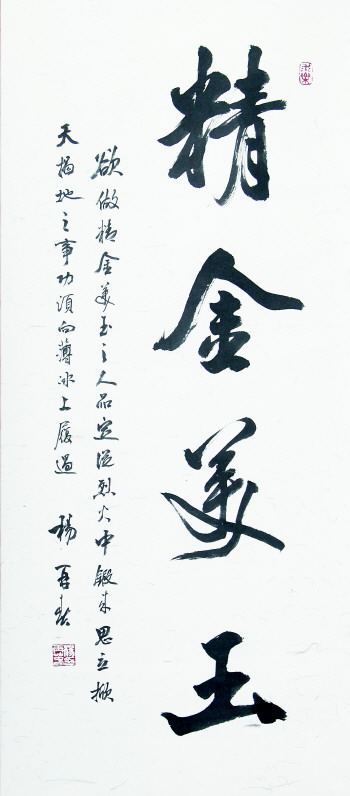 精金美玉
欲做精金美玉之人品定從烈火中鍛來思立掀
天揭地之事功須向薄冰上履過
楊再春